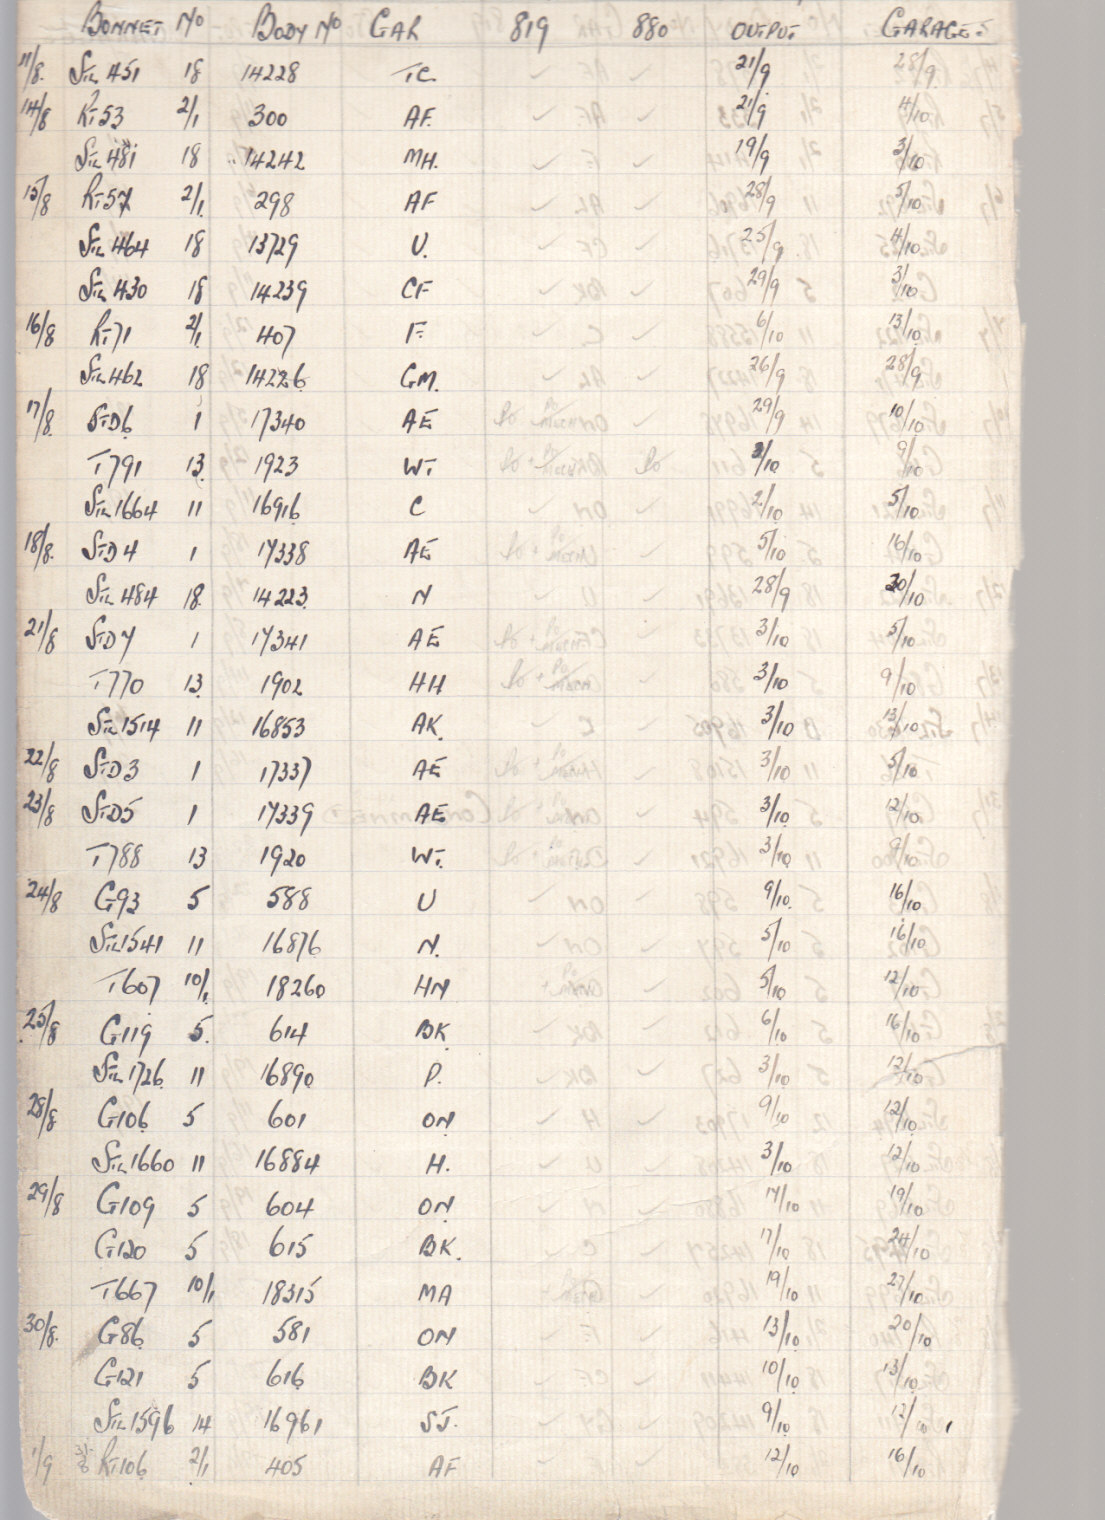 BONNET No BODY No GAR 819 880 OUTPUT GARAGES
11/8. STL 451 18 14228 TC. ✓ ✓ 21/9 28/9
14/8 RT53 2/1 300 AF. ✓ ✓ 21/9 4/10
STL 481 18 14242 MH. ✓ ✓ 19/9 3/10
15/8 RT57 2/1 298 AF ✓ ✓ 28/9 5/10
STL 464 18 13729 U. ✓ ✓ 25/9 4/10
STL 430 18 14239 CF ✓ ✓ 29/9 3/10
16/8 RT71 2/1 407 F. ✓ ✓ 6/10 13/10
STL 462 18 14226 GM. ✓ ✓ 26/9 28/9
17/8. STD6 1 17340 AE 29/9 10/10
T791 13 1923 WT 2/10 9/10
STL 1664 11 16916 C ✓ ✓ 2/10 5/10
18/8. STD4 1 17338 AE 5/10 16/10
STL 484 18 14223 N ✓ ✓ 28/9 30/10
21/8 STD7 1 17341 AE 3/10 5/10
T770 13 1902 HH 3/10 9/10
STL 1514 11 16853 AK. ✓ ✓ 3/10 13/10
22/8 STD3 1 17337 AE 3/10 5/10
23/8 STD5 1 17339 AE 3/10 12/10
T788 13 1920 WT. 3/10 9/10
24/8 G93 5 588 U ✓ ✓ 9/10 16/10
STL 1541 11 16876 N. ✓ ✓ 5/10 16/10
T607 10/1 18260 HN 5/10 12/10
25/8 G119 5. 614 BK ✓ ✓ 6/10 16/10
STL 1726 11 16890 P. ✓ ✓ 3/10 12/10
28/8 G106 5 601 ON ✓ ✓ 9/10 12/10
STL 1660 11 16884 H. ✓ ✓ 3/10 12/10
29/8 G109 5 604 ON ✓ ✓ 17/10 19/10
G120 5 615 BK. ✓ ✓ 17/10 24/10
T667 10/1 18315 MA 19/10 27/10
30/8. G86 5 581 ON ✓ ✓ 13/10 20/10
G121 5 616 BK ✓ ✓ 10/10 13/10
STL 1596 14 16961 SJ. ✓ ✓ 9/10 12/10
1/9 RT106 2/1 405 AF ✓ ✓ 12/10 16/10